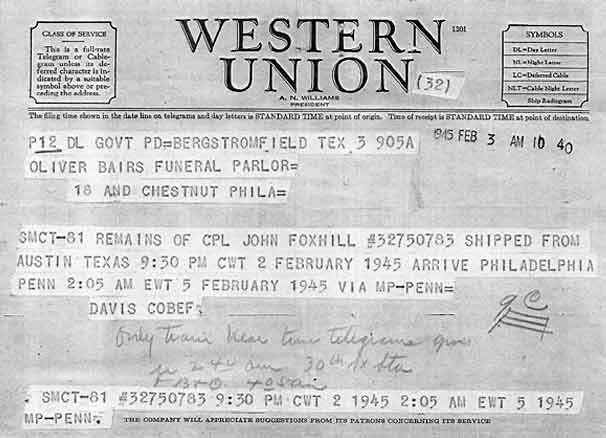 CLASS OF SERVICE
This is a full-rate
Telegram or Cable-
gram unless its de-
ferred character is in-
dicated by a suitable
symbol above or pre-
ceding the address.
WESTERN
UNION
1201
(32)
A. N. WILLIAMS
PRESIDENT
SYMBOLS
DL=Day Letter
NL=Night Letter
LC=Deferred Cable
NLT=Cable Night Letter
Ship Radiogram
The filing time shown in the date line on telegrams and day letters is STANDARD TIME at point of origin. Time of receipt is STANDARD TIME at point of destination.
P12 DL GOVT PD=BERGSTROMFIELD TEX 3 905A
1945 FEB 3 AM 10 40
OLIVER BAIRS FUNERAL PARLOR=
18 AND CHESTNUT PHILA=
SMCT-81 REMAINS OF CPL JOHN FOXHILL #32750783 SHIPPED FROM
AUSTIN TEXAS 9:30 PM CWT 2 FEBRUARY 1945 ARRIVE PHILADELPHIA
PENN 2:05 AM EWT 5 FEBRUARY 1945 VIA MP-PENN=
DAVIS COBEF.
Only train near time telegrams
2 40 am 30th St Sta
B+O
SMCT-81 #32750783 9:30 PM CWT 2 1945 2:05 AM EWT 5 1945
MP-PENN.
THE COMPANY WILL APPRECIATE SUGGESTIONS FROM ITS PATRONS CONCERNING ITS SERVICE